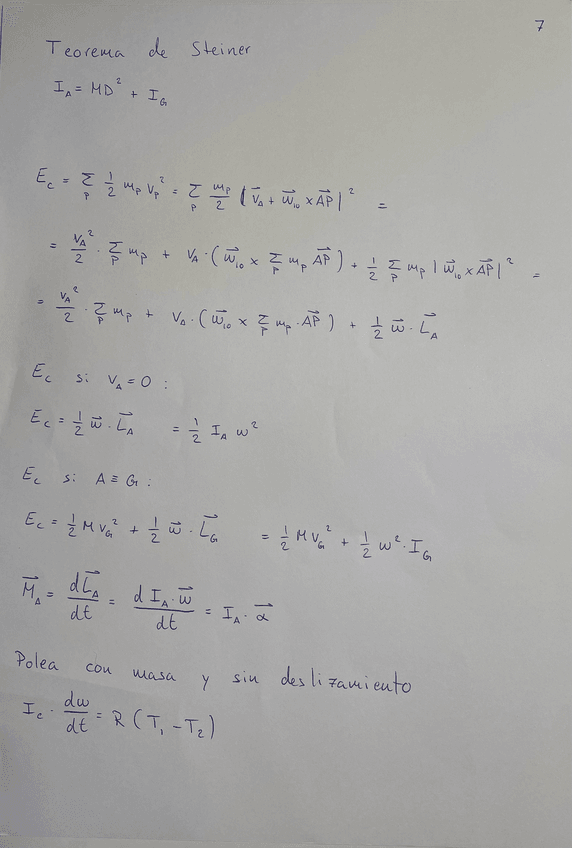 7
Teorema de Steiner
I_A = MD² + I_G
E_c = Σ_p ½ m_p v_p² = Σ_p m_p/2 |v⃗_A + w⃗_10 × A⃗P⃗|² =
= v_A²/2 · Σ_p m_p + v_A · (w⃗_10 × Σ_p m_p A⃗P⃗) + ½ Σ_p m_p |w⃗_10 × A⃗P⃗|² =
= v_A²/2 · Σ_p m_p + v_A · (w⃗_10 × Σ_p m_p · A⃗P⃗) + ½ w⃗ · L⃗_A
E_c si v_A = 0 :
E_c = ½ w⃗ · L⃗_A = ½ I_A w²
E_c si A ≡ G :
E_c = ½ M v_G² + ½ w⃗ · L⃗_G = ½ M v_G² + ½ w² · I_G
M⃗_A = dL⃗_A/dt = d I_A · w⃗/dt = I_A · α⃗
Polea con masa y sin deslizamiento
I_c · dw/dt = R (T_1 - T_2)